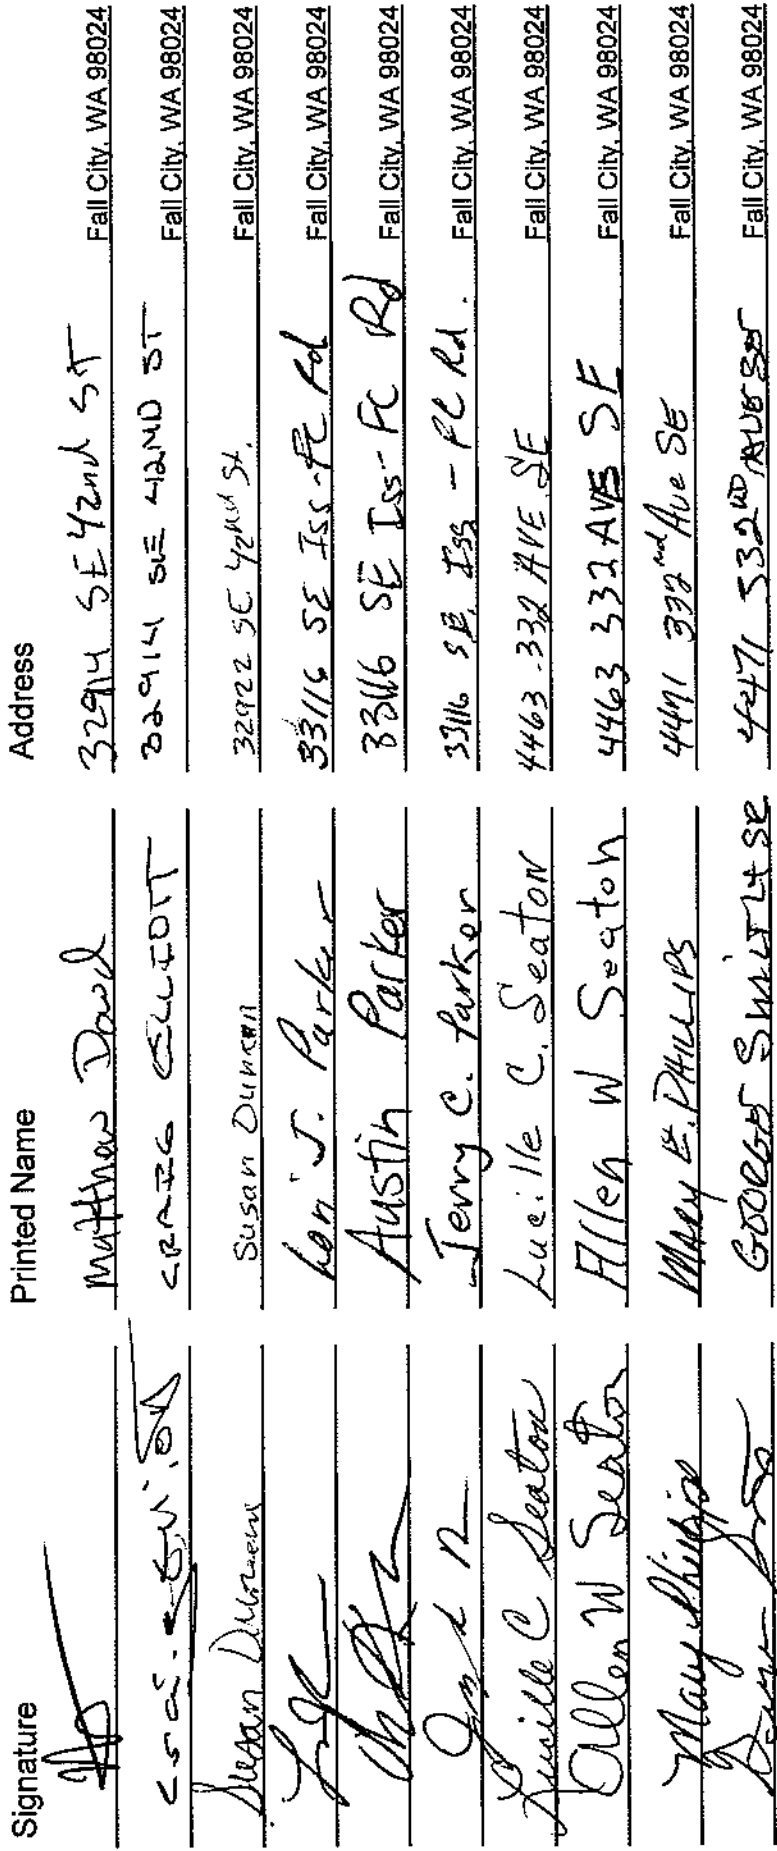 Signature Printed Name Address
Matthew Dowd 32914 SE 42nd ST Fall City, WA 98024
CRAIG ELLIOTT 32914 SE 42ND ST Fall City, WA 98024
Susan Duncan Susan Duncan 32922 SE 42nd St. Fall City, WA 98024
Lori J. Parker 33116 SE Iss-FC Rd Fall City, WA 98024
Austin Parker 33116 SE Iss-FC Rd Fall City, WA 98024
Jerry C. Parker 33116 SE, Iss - FC Rd. Fall City, WA 98024
Lucille C Seaton Lucille C. Seaton 4463 - 332 AVE SE Fall City, WA 98024
Allen W Seaton Allen W Seaton 4463 332 AVE SE Fall City, WA 98024
Mary Phillips Mary E. PHILLIPS 4471 332nd Ave SE Fall City, WA 98024
4471 332ND AVE SE Fall City, WA 98024